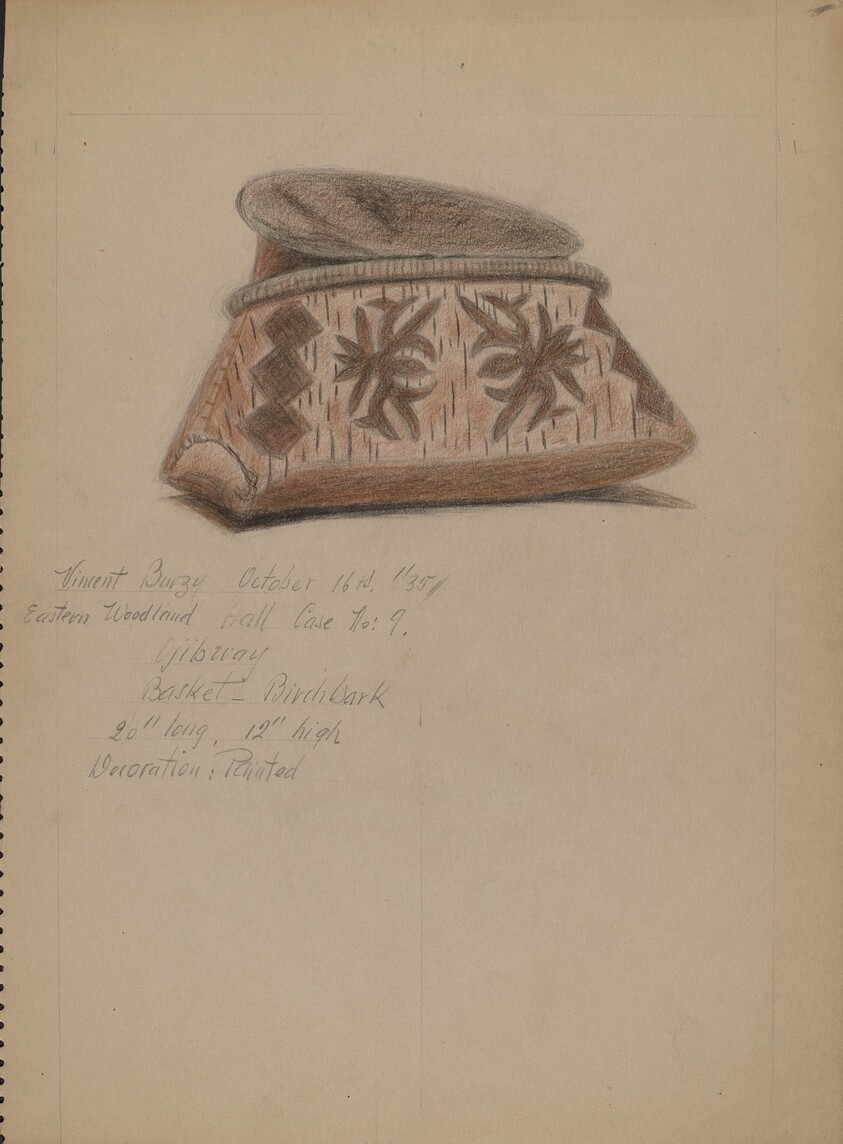 Vincent Burzy October 16th, "35"
Eastern Woodland Hall Case No: 9.
Ojibway
Basket - Birchbark
20" long, 12" high
Decoration: Painted